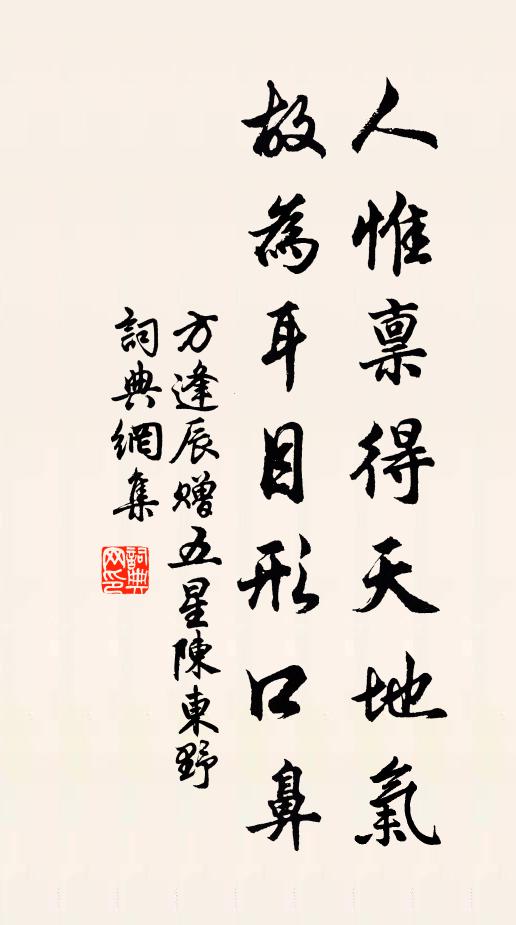 人惟禀得天地氣
故為耳目形口鼻
方逢辰赠五星陳東野
詞典網集
詞典網印